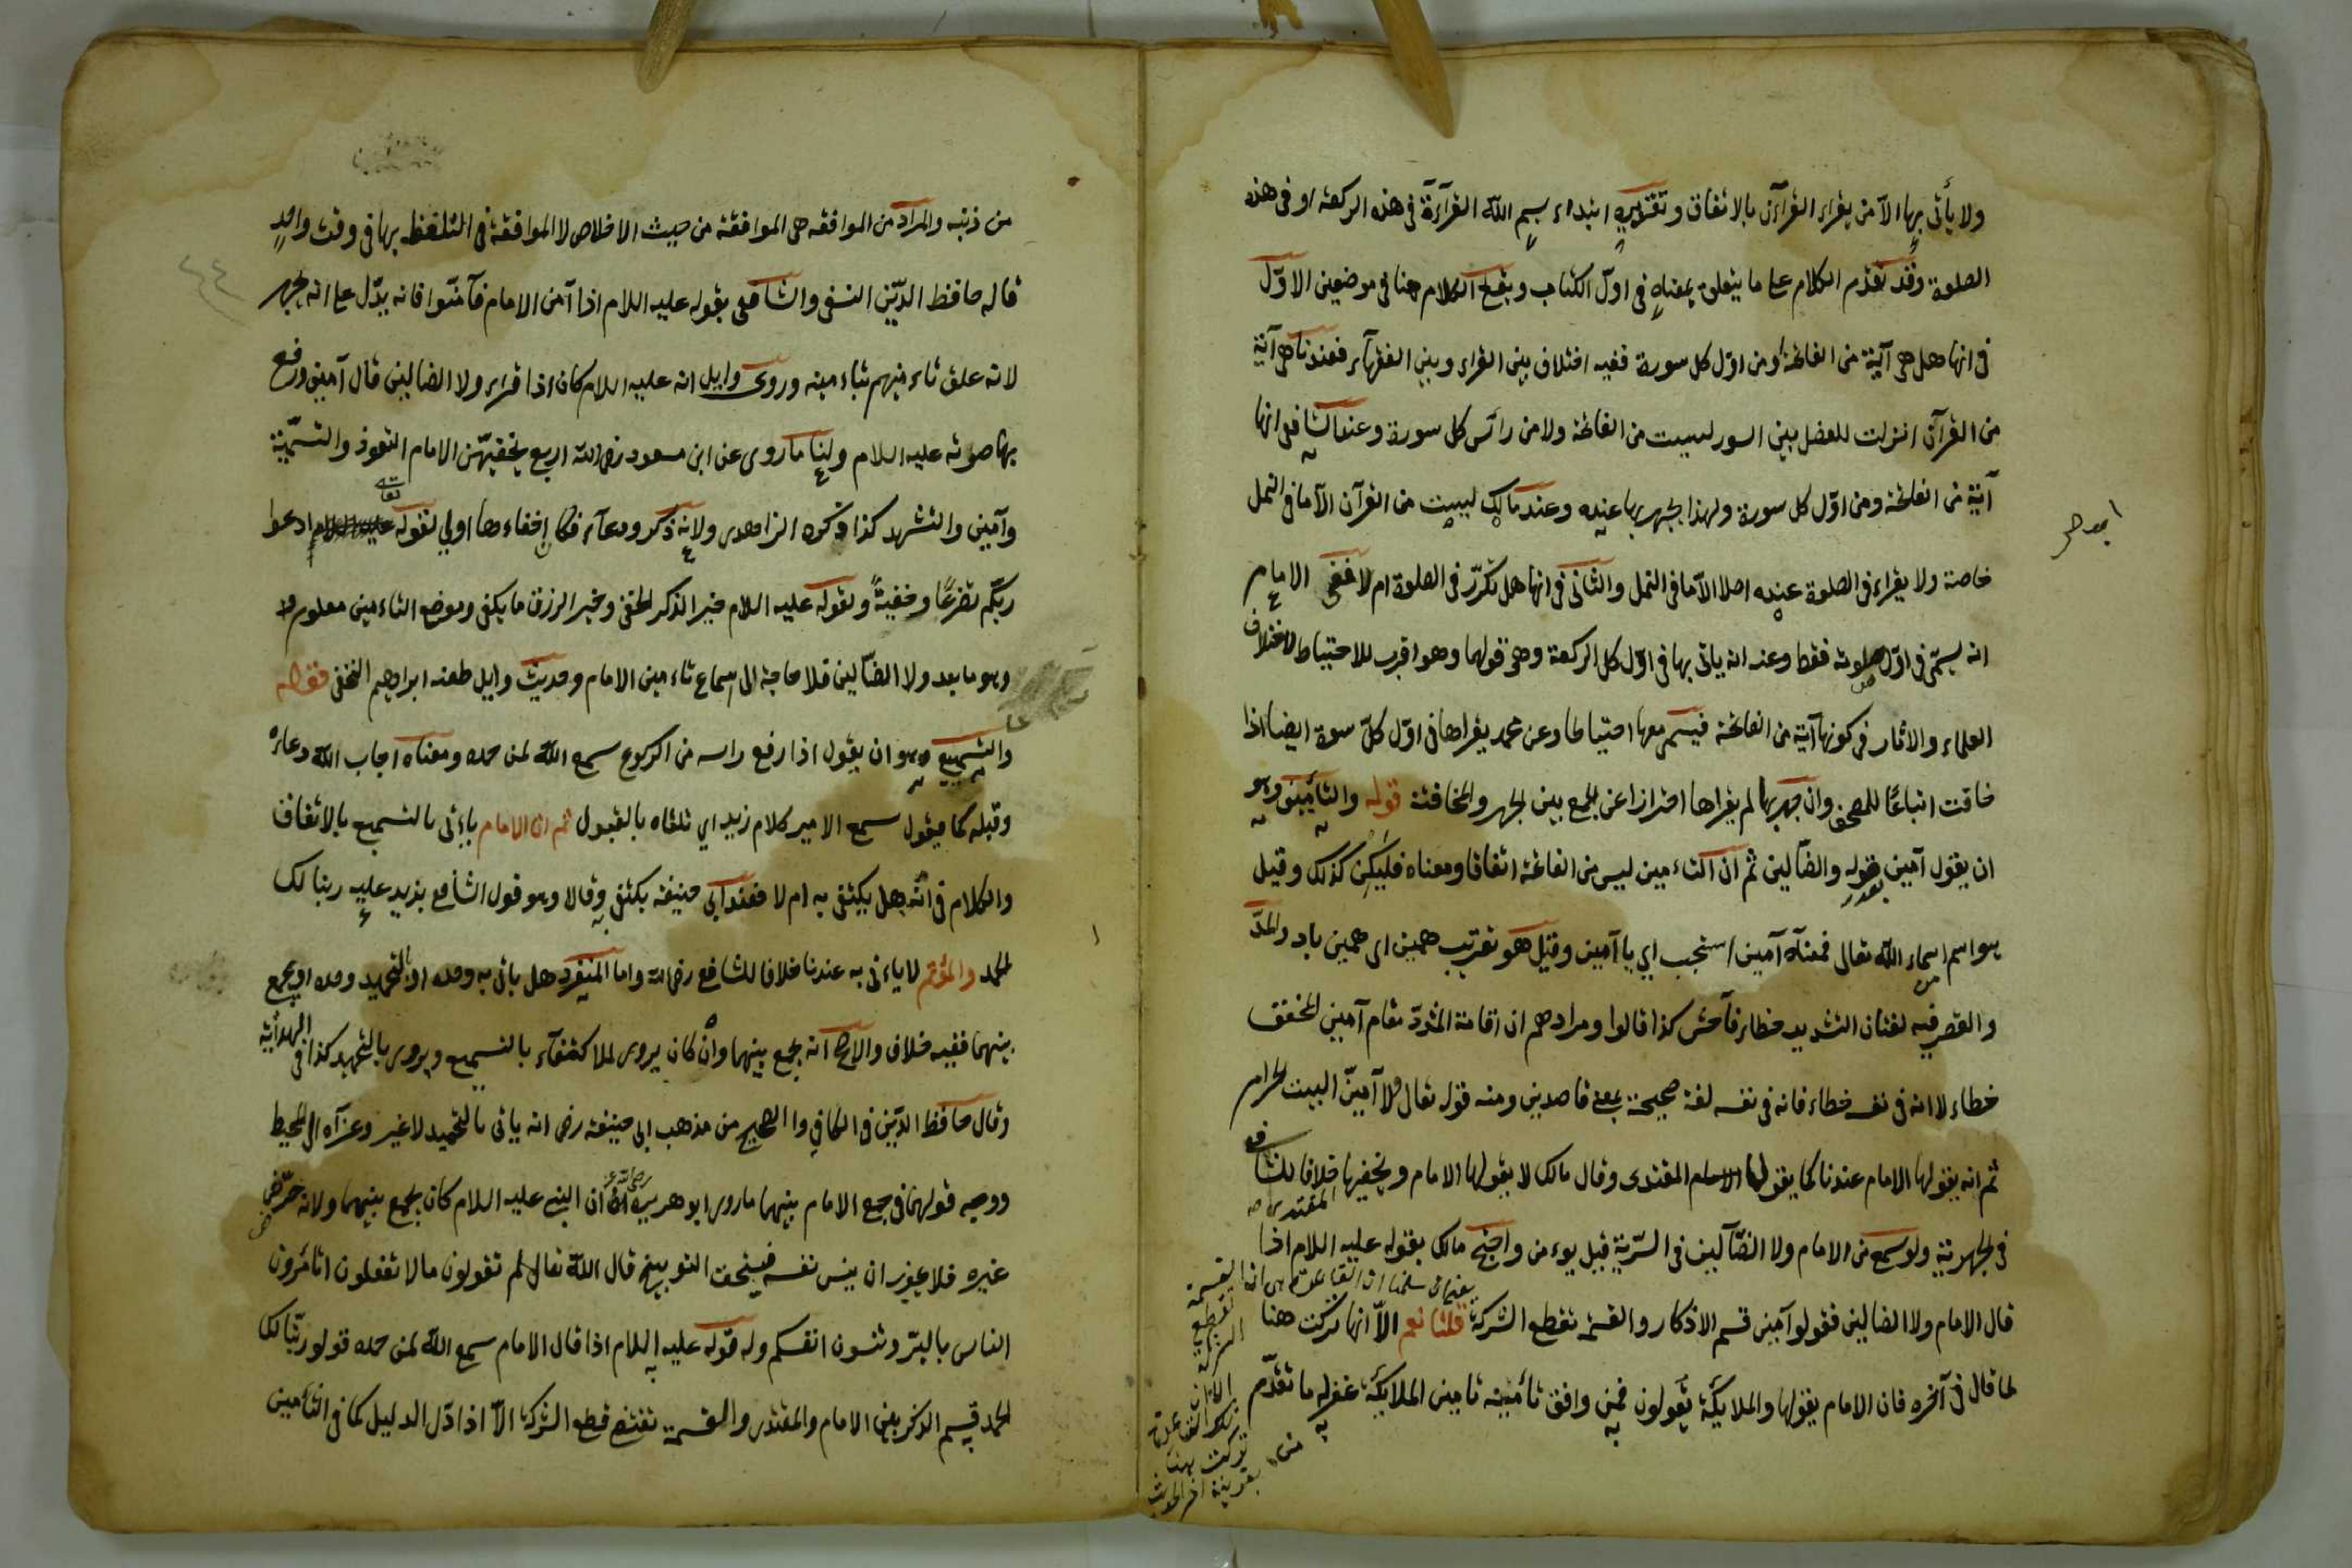 ولا يأتى بها الا من يقراء القرآن بالاتفاق وتقديره ابتداء بسم الله القرآءة فى هذه الركعة او فى هذه
الصلوة وقد تقدم الكلام على ما يتعلق بمعناه فى اول الكتاب ويقع الكلام هنا فى موضعين الاوّل
فى انها هل هى آية من الفاتحة ومن اوّل كل سورة ففيه اختلاف بين القراء وبين الفقهآء فعندنا هى آية
من القرآن انزلت للفصل بين السور ليست من الفاتحة ولا من رأس كل سورة وعند الشافعى انها
آية من الفاتحة ومن اوّل كل سورة ولهذا يجهر بها عنده وعند مالك ليست من القرآن الا ما فى النمل
خاصة ولا يقراء فى الصلوة عنده اصلا الا ما فى النمل والثانى فى انها هل تكرّر فى الصلوة ام لا فعن الامام
انه يسمّى فى اوّل صلوته فقط وعنه انه ياتى بها فى اوّل كل الركعة وهو قولهما وهو اقرب للاحتياط لاختلاف
العلماء والاثار فى كونها آية من الفاتحة فيسمى معها احتياطا وعن محمد يقراها فى اوّل كلّ سورة ايضا اذا
خافت اتباعًا للمصحف وان جهر بها لم يقراها احترازا عن الجمع بين الجهر والمخافتة قوله والتأمين وهو
ان يقول آمين بعد قوله والضآلين ثم ان التاءمين ليس من الفاتحة اتفاقا ومعناه فليكن كذلك وقيل
هو اسم من اسماء الله تعالى فمعناه آمين استجب اي يا آمين وقيل هو تعريب همين اى همين باد والمدّ
والقصر فيه لغتان التشديد خطاء فاحش كذا قالوا ومرادهم ان اقامة المشدّد مقام آمين المخفف
خطاء لا انه فى نفسه خطاء فانه فى نفسه لغة صحيحة بمعنى قاصدين ومنه قوله تعالى ولا آمّين البيت الحرام
ثم انه يقولها الامام عندنا كما يقولها المقتدى وقال مالك لا يقولها الامام ويخفيها خلافا للشافعى
فى الجهرية ولو سمع المقتدى من الامام ولا الضآلين فى السّرّية قيل يوءمن واحتج مالك بقوله عليه السلام اذا
قال الامام ولا الضالين فقولوا آمين قسم الاذكار والقسمة تقطع الشركة قلنا نعم الاّ انها تركت هنا
لما قال فى آخره فان الامام يقولها والملايكة يقولون فمن وافق تأمينه تامين الملايكة غفر له ما تقدّم
من ذنبه والمراد من الموافقه هى الموافقة من حيث الاخلاص لا الموافقة فى التلفظ بها فى وقت واحدٍ
قاله حافظ الدّين النسفى والشافعى بقوله عليه السلام اذا آمن الامام فآمّنوا فانه يدّل على انه يجهر
لانه علق تاءمينهم بتاءمينه وروى وايل انه عليه السلام كان اذا قراء ولا الضالين قال آمين ورفع
بها صوته عليه السلام ولنا ما روى عن ابن مسعود رضى الله اربع يخفيهّن الامام التعوذ والتسمّية
وآمين والتشهد كذا ذكره الزاهدى ولانه ذكر ودعآء فكان اخفاءها اولى لقوله تعالى ادعوا
ربّكم تضرعًا وخفيةً ولقوله عليه السلام خير الذكر الخفى وخير الرزق ما يكفى وموضع التاءمين معلوم
وهو ما بعد ولا الضآلين فلا حاجة الى اسماع تاءمين الامام وحديث وايل طعنه ابراهيم النخعى قوله
والتسميع وهو ان يقول اذا رفع راسه من الركوع سمع الله لمن حمده ومعناه اجاب الله دعاءه
وقبله كما يقول سمع الامير كلام زيد اي تلقاه بالقبول ثم ان الامام ياءتى بالتسميع بالاتفاق
والكلام فى انّه هل يكتفى به ام لا فعند ابى حنيفة يكتفى به وقالا وهو قول الشافعى يزيد عليه ربنا لك
الحمد والمؤتم لا ياءتى به عندنا خلافا للشافعى رضى الله واما المنفرد هل ياتى به وحده او بالتحميد وحده او يجمع
بينهما ففيه خلاف والاصح انه يجمع بينهما وان كان يروى الاكتفآء بالتسميع ويروى بالتحميد كذا فى الهداية
وقال حافظ الدّين فى الكافى والصحيح من مذهب ابى حنيفة رضى انه ياتى بالتحميد لا غير وعزآه الى المحيط
ووجه قولهما فى جمع الامام بينهما ما روى ابو هريرة رضى الله عنه ان النبى عليه السلام كان يجمع بينهما ولانه حرّض
غيره فلا يجوز ان ينسى نفسه فيستحق التوبيخ قال الله تعالى لم تقولون ما لا تفعلون اتامرون
الناس بالبرّ وتنسون انفسكم وله قوله عليه السلام اذا قال الامام سمع الله لمن حمده قولوا ربّنا لك
الحمد قسم الذكر بين الامام والمقتدى والقسمة تقتضى قطع الشركة الاّ اذا دّل الدليل كما فى التأمين